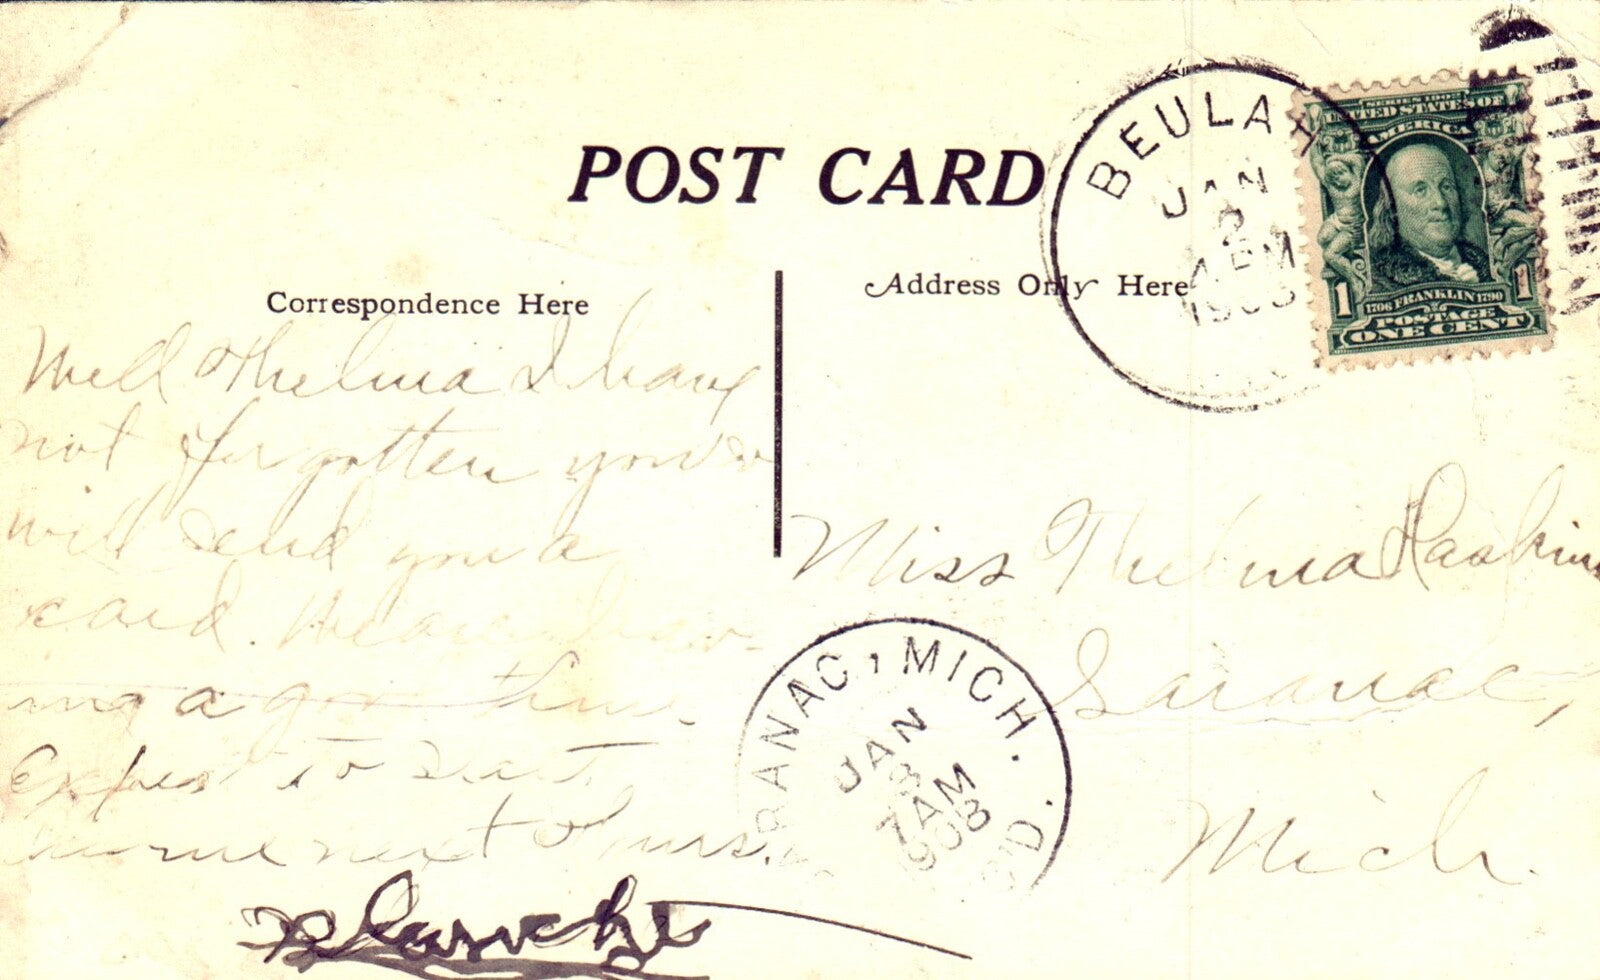 POST CARD
Correspondence Here
Address Only Here
BEULAH
JAN
2
PM
1908
SERIES 1902
UNITED STATES OF
AMERICA
1 1
1706 FRANKLIN 1790
POSTAGE
ONE CENT
Well Thelma I have
not forgotten you &
will send you a
card. We are hav-
ing a good time.
Expect to start
home next Thurs.
Blanche
Miss Thelma Haskins
Saranac,
Mich.
RANAC, MICH.
JAN
3
7 AM
1908
REC'D.